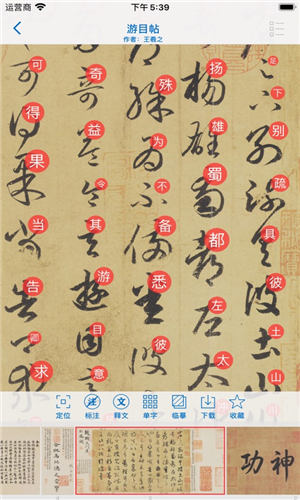 运营商
下午5:39
游目帖
作者：王羲之
足下别疏具彼土山
扬雄蜀都左太
殊为不备悉彼
奇益令其游目意
可得果当告卿求
定位 标注 释文 单字 临摹 下载 收藏
神功